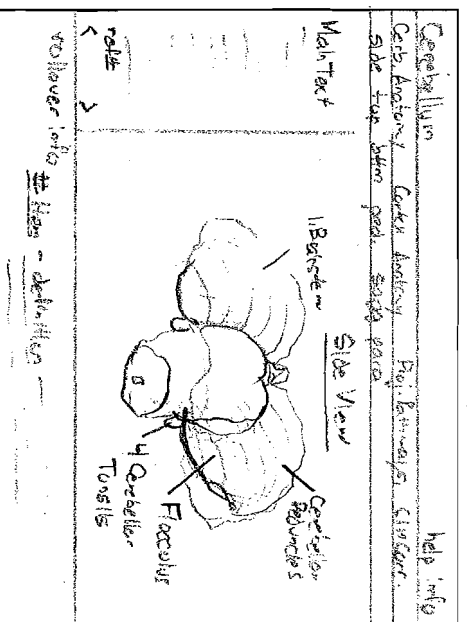 Cerebellum help info
Cerb. Anatomy Cortex Anatomy Proj. Pathways Clin Corr.
side top bttm ped. sagg para
Main Text
refs
< >
Side View
1. Brainstem
Cerebellar Peduncles
Flocculus
4 Cerebellar
Tonsils
rollover info # Item - definition